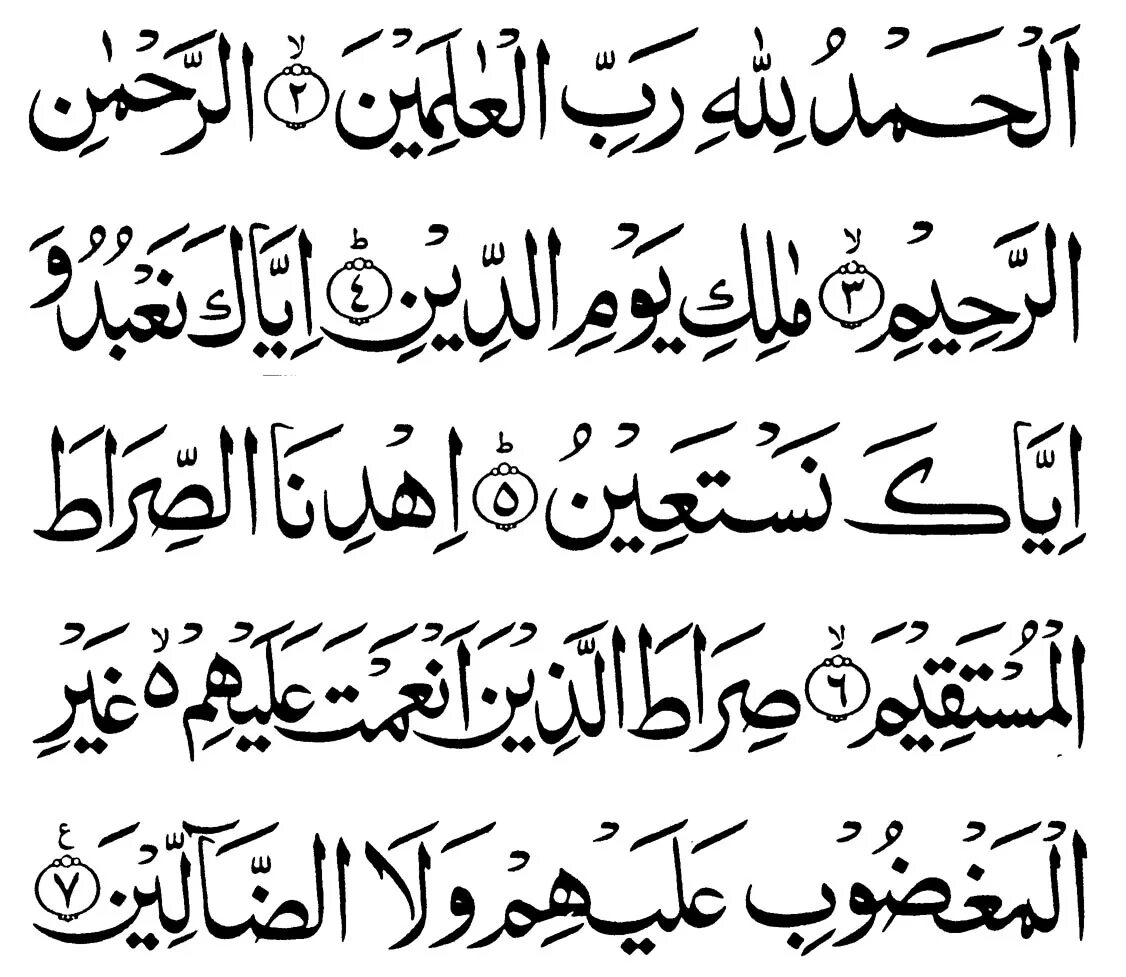 اَلْحَمْدُ لِلّٰهِ رَبِّ الْعٰلَمِيْنَ ۙ‏﴿۲﴾ الرَّحْمٰنِ
الرَّحِيْمِ ۙ‏﴿۳﴾ مٰلِكِ يَوْمِ الدِّيْنِ ؕ‏﴿٤﴾ اِيَّاكَ نَعْبُدُ وَ
اِيَّاكَ نَسْتَعِيْنُ ؕ‏﴿۵﴾ اِهْدِنَا الصِّرَاطَ
الْمُسْتَقِيْمَ ۙ‏﴿٦﴾ صِرَاطَ الَّذِيْنَ اَنْعَمْتَ عَلَيْهِمْ ۙ۬ ۵ غَيْرِ
الْمَغْضُوْبِ عَلَيْهِمْ وَلَا الضَّآلِّيْنَ ‏﴿۷﴾ ع